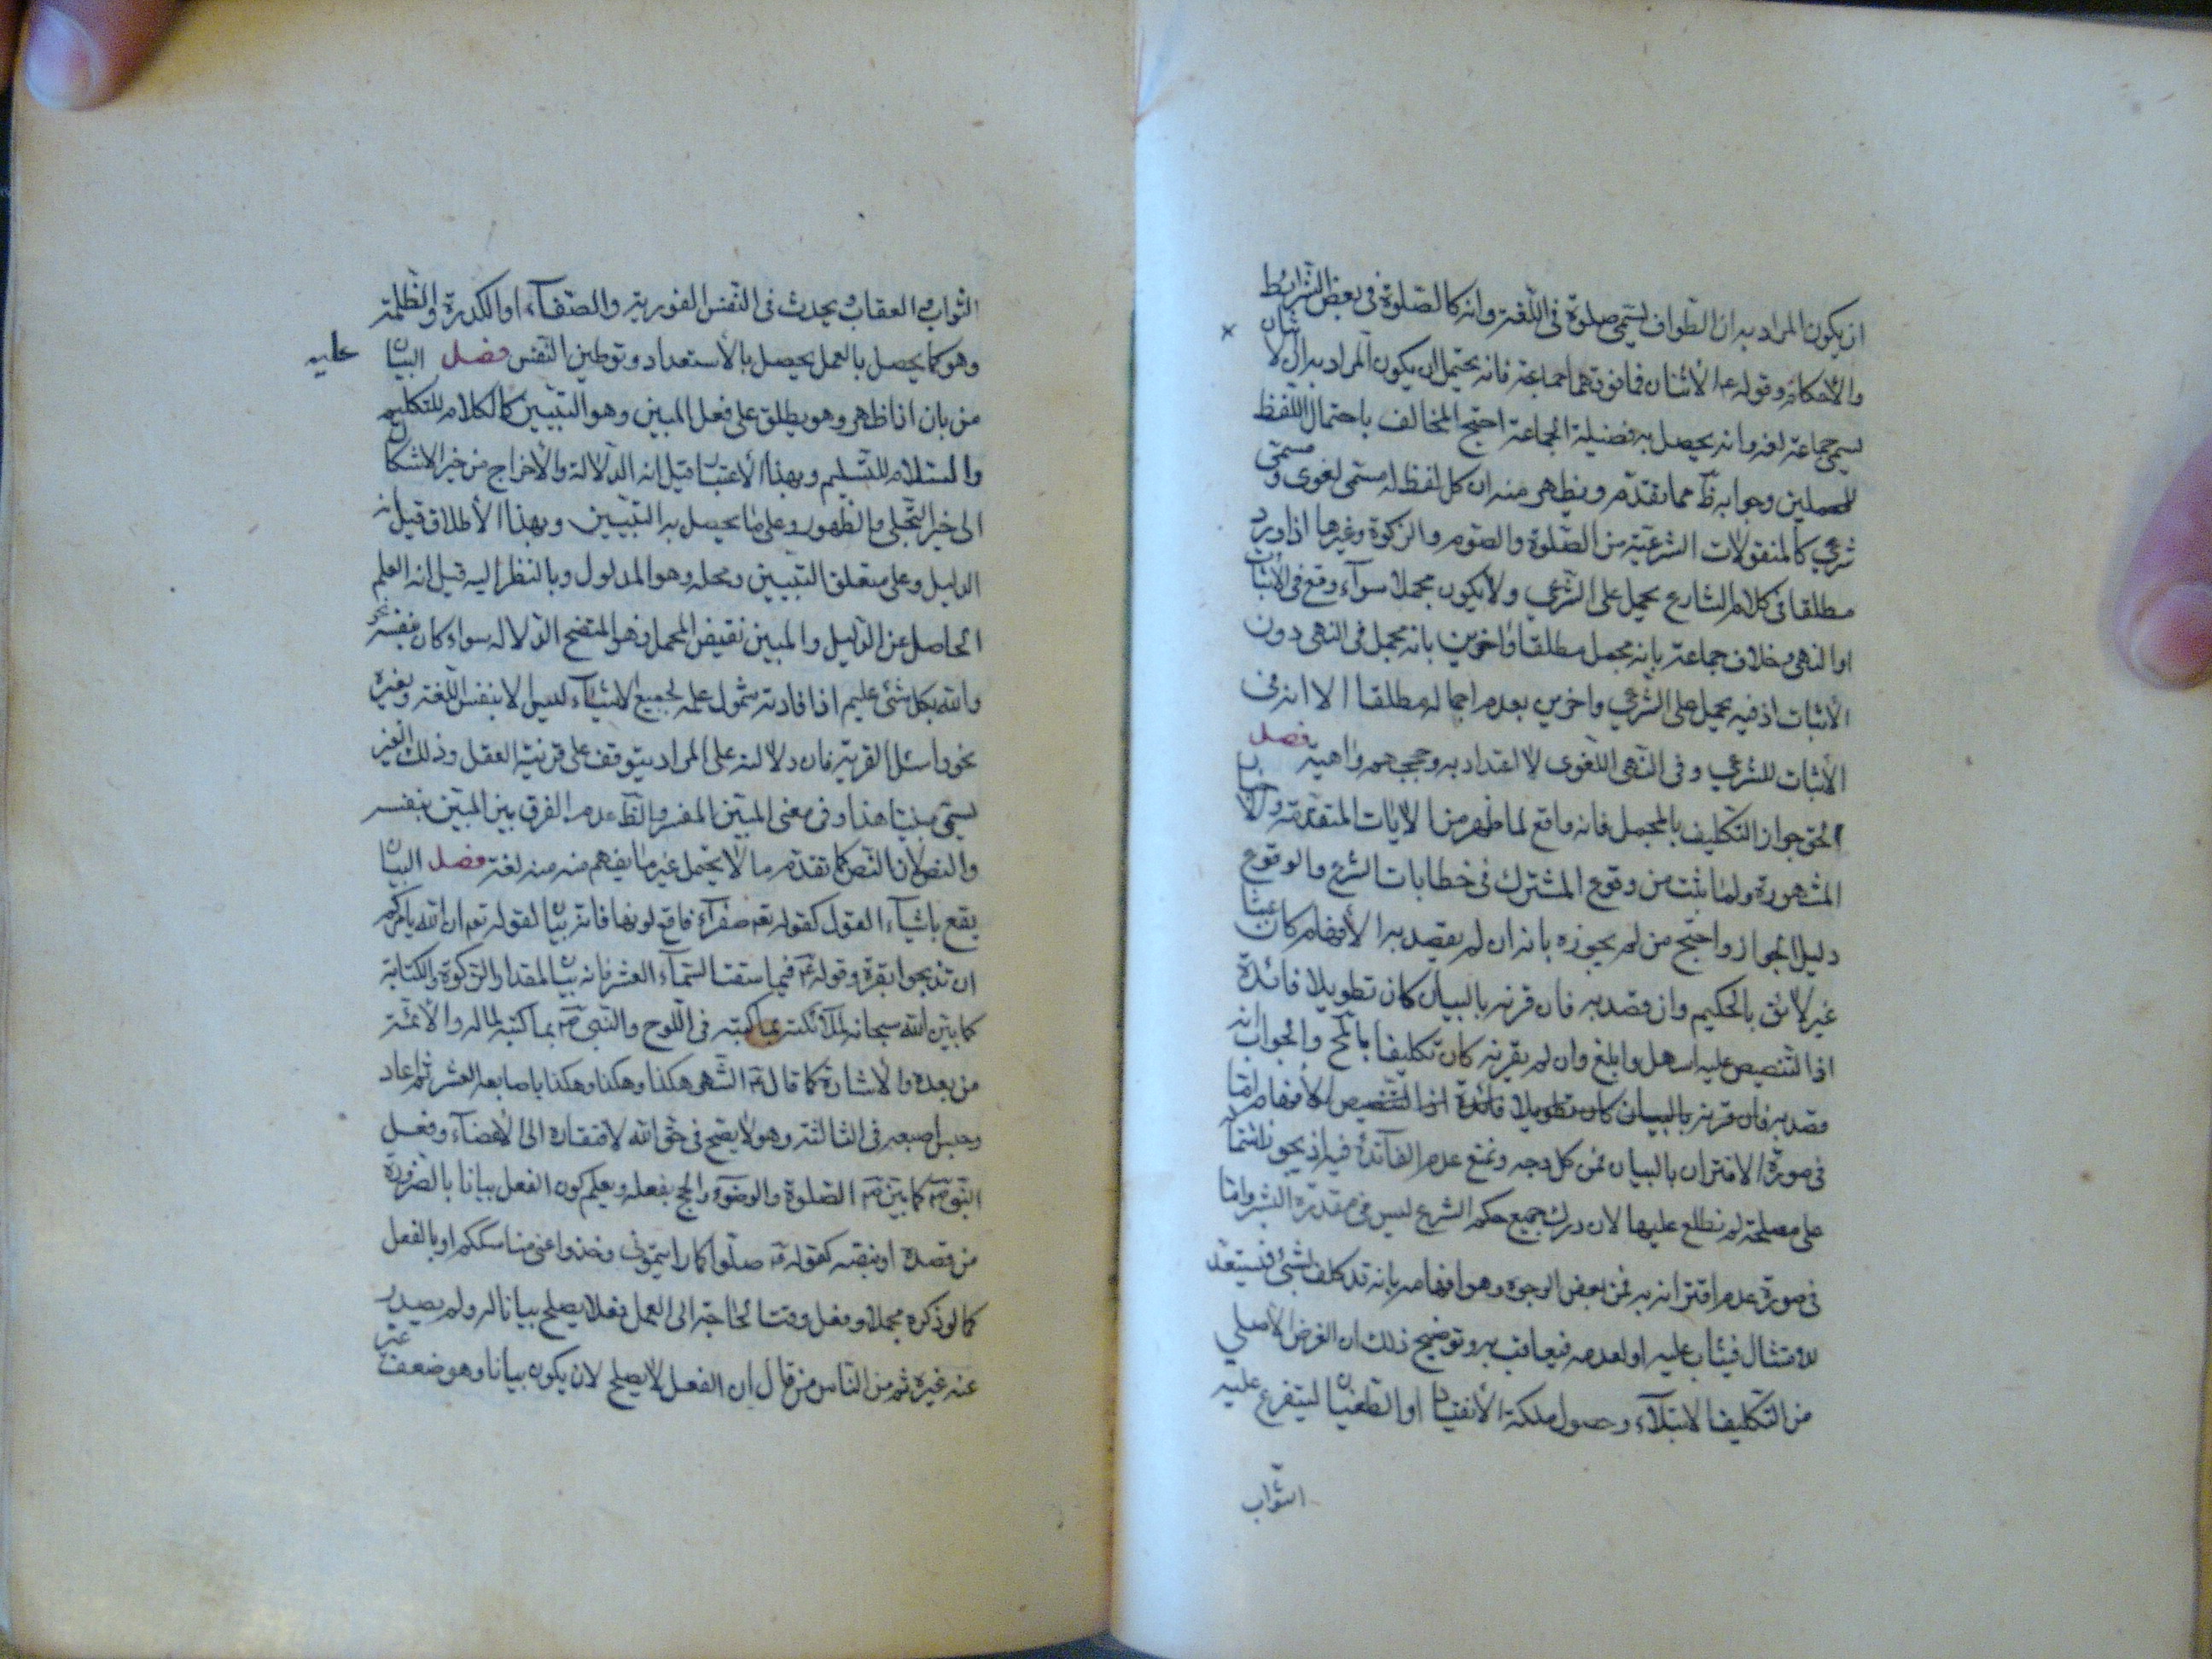 ان يكون المراد به ان الطواف يسمى صلوة فى اللغة وانه كالصلوة فى بعض الشرايط
والأحكام وقوله ع الأثنان فما فوقهما جماعة فانه يحتمل ان يكون المراد به ان الاثنان
يسمى جماعة لغة وانه يحصل به فضيلة الجماعة احتج المخالف باحتمال اللفظ
للمحملين وجوابه ظ مما تقدم ويظهر منه ان كل لفظ له مسمى لغوى ومسمى
شرعى كالمنقولات الشرعية من الصلوة والصوم والزكوة وغيرها اذا ورد
مطلقا فى كلام الشارع يحمل على الشرعى ولا يكون مجملا سوآء وقع فى الأثبات
او النهى وخلاف جماعة بانه مجمل مطلقا واخرين بانه مجمل فى النهى دون
الأثبات اذ فيه يحمل على الشرعى واخرين بعدم اجماله مطلقا الا انه فى
الأثبات للشرعى وفى النهى اللغوى لا اعتداد به وحججهم واهية فصل
الحق جواز التكليف بالمجمل فانه واقع لما ظهر من الايات المتقدمة والاخبار
المشهورة ولما ثبت من وقوع المشترك فى خطابات الشرع والوقوع
دليل الجواز واحتج من لم يجوزه بانه ان لم يقصد به الأفهام كان عبثا
غير لائق بالحكيم وان قصد به فان قرنه بالبيان كان تطويلا فائدة
اذ التنصيص عليه اسهل وابلغ وان لم يقرنه كان تكليفا بالمح والجواب انه
قصد به فان قرنه بالبيان كان تطويلا فائدة اذ التنصيص الأفهام اما
فى صورة الاقتران بالبيان فمن كل وجه ونمنع عدم الفآئدة فيه اذ يجوز اشتماله
على مصلحة لم نطلع عليها لان درك جميع حكم الشرع ليس فى مقدرة البشر واما
فى صورة عدم اقترانه به فمن بعض الوجوه وهو افهامه بانه قد كلف بشئ فيستعد
للأمتثال فيثاب عليه او لعدمه فيعاقب به وتوضيح ذلك ان الغرض الأصلى
من التكليف الابتلآء وحصول ملكة الأنقياد او الطغيان ليتفرع عليه
الثواب
الثواب والعقاب يحدث فى النفس النورية والصفآء او الكدرة والظلمة
وهو كما يحصل بالعمل يحصل بالأستعداد وتوطين النفس فصل البيان
عليه
من بان اذا ظهر وهو يطلق على فعل المبين وهو التبيين كالكلام للتكليم
والسلام للتسليم وبهذا الأعتبار قيل انه الدلالة والأخراج من حيز الاشكال
الى حيز التجلى والظهور وعلى ما يحصل به التبيين وبهذا الأطلاق قيل انه
الدليل وعلى متعلق التبيين ومحله وهو المدلول وبالنظر اليه قيل انه العلم
الحاصل عن الدليل والمبين نقيض المجمل فهو المتضح الدلاله سواء كان بنفسه نحو
والله بكل شئ عليم اذ افادته شمول علمه لجميع الاشيآء ليس الا بنفس اللغة وبغيره
نحو واسئل القرية فان دلالته على المراد يتوقف على قرينة العقل وذلك الغير
يسمى مبينا هذا وفى معنى المبين المفسر والظ عدم الفرق بين المبين بنفسه
والنص لان النص كما تقدم ما لا يحتمل غير ما يفهم منه لغة فصل البيان
يقع باشيآء القول كقوله تع صفرآء فاقع لونها فانه بيان لقوله تع ان الله يامركم
ان تذبحوا بقرة وقوله ع فيما سقت السمآء العشر فانه بيان لمقدار الزكوة والكتابة
كما بين الله سبحانه لملآئكته بما كتبه فى اللوح والنبى ص بما كتبه لماله والأئمة
من بعده والأشارة كما قال ع الشهر هكذا وهكذا وهكذا باصابعه العشر ثم اعاد
وحبس اصبعه فى الثالثة وهو لا يصح فى حق الله لافتقاره الى الأعضآء وفعل
النبى ص كما بين ص الصلوة والوضوء والحج بفعله ويعلم كون الفعل بيانا بالضرورة
من قصده او بنصه كقوله ص صلوا كما رايتمونى وخذوا عنى مناسككم او بالفعل
كما لو ذكره مجملا وفعل وقت الحاجة الى العمل فعلا يصلح بيانا له ولم يصدر
عنه غيره ثم من الناس من قال ان الفعل لا يصلح لان يكون بيانا وهو ضعف